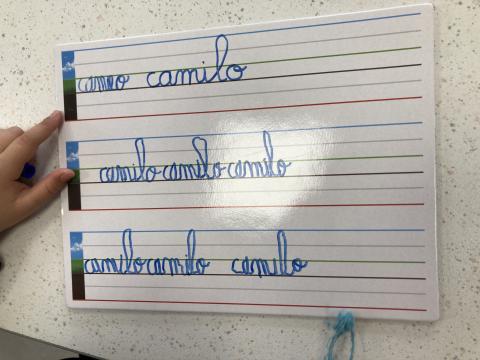 camilo camilo
camilo camilo camilo
camilo camilo camilo